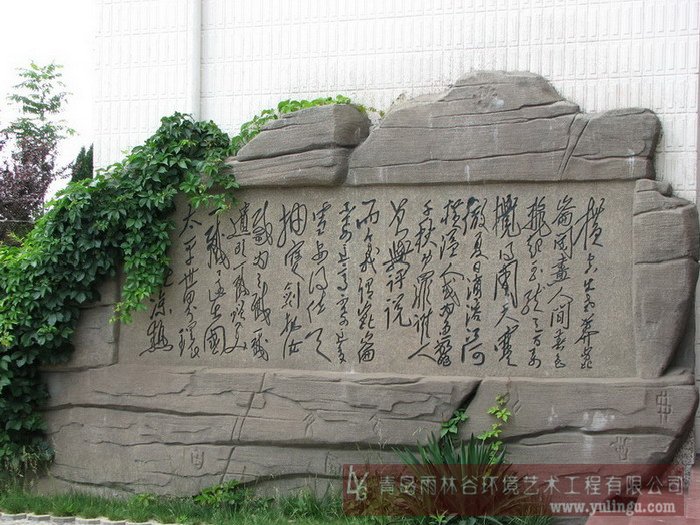 橫空出世莽崑
崙阅尽人间春色
飞起玉龙三百万
攪得周天寒
彻夏日消溶江河
横溢人或为鱼鳖
千秋功罪谁人
曾与评说
而今我谓崑崙
不要这高不要这多
雪安得倚天
抽宝剑把汝
裁为三截一截
遗欧一截赠美
一截还东国
太平世界环
球同此凉热
青岛雨林谷环境艺术工程有限公司
www.yulingu.com